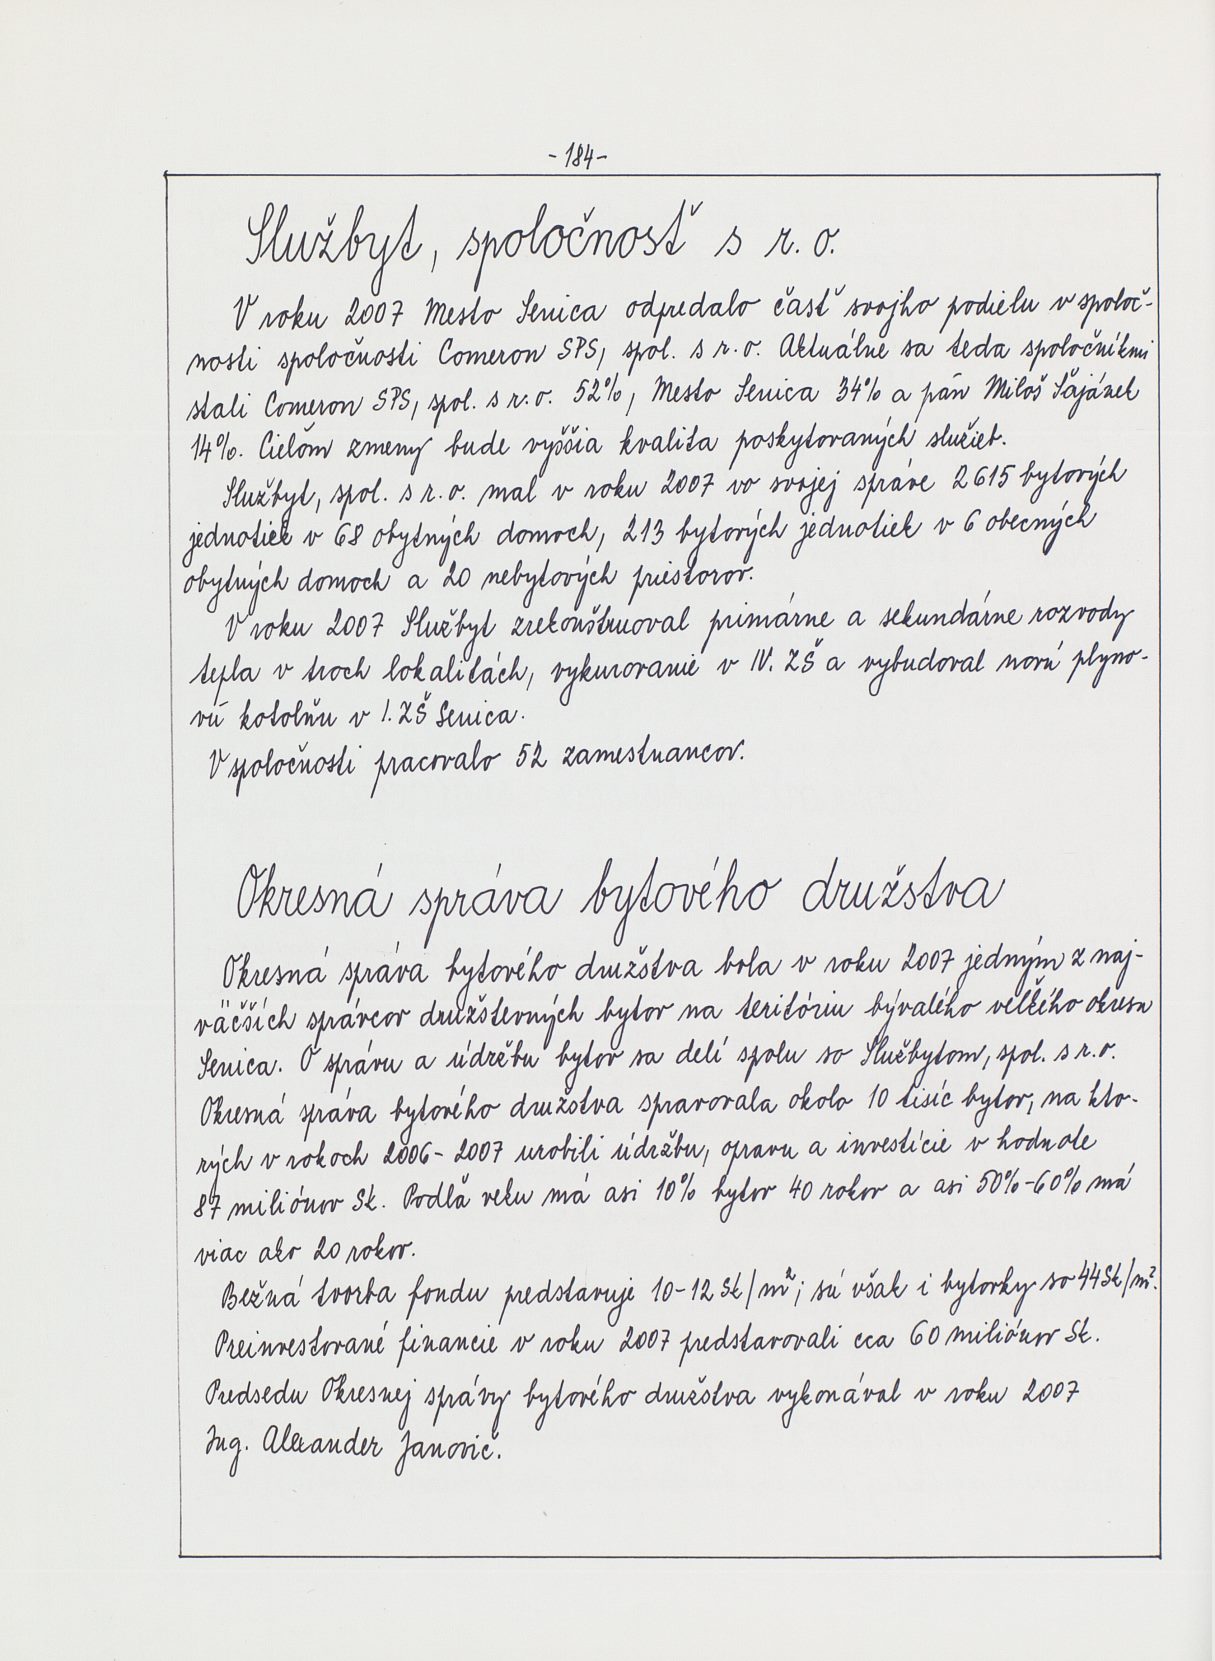 - 184 -
Službyt, spoločnosť s r. o.
V roku 2007 Mesto Senica odpredalo časť svojho podielu v spoloč-
nosti spoločnosti Comeron SPS, spol. s r. o. Aktuálne sa teda spoločníkmi
stali Comeron SPS, spol. s r. o. 52%, Mesto Senica 34% a pán Miloš Šajánek
14%. Cieľom zmeny bude vyššia kvalita poskytovaných služieb.
Službyt, spol. s r. o. mal v roku 2007 vo svojej správe 2615 bytových
jednotiek v 68 obytných domoch, 213 bytových jednotiek v 6 obecných
obytných domoch a 20 nebytových priestorov.
V roku 2007 Službyt zrekonštruoval primárne a sekundárne rozvody
tepla v troch lokalitách, vykurovanie v IV. ZŠ a vybudoval novú plyno-
vú kotolňu v I. ZŠ Senica.
V spoločnosti pracovalo 52 zamestnancov.
Okresná správa bytového družstva
Okresná správa bytového družstva bola v roku 2007 jedným z naj-
väčších správcov družstevných bytov na teritóriu bývalého veľkého okresu
Senica. O správu a údržbu bytov sa delí spolu so Službytom, spol. s r. o.
Okresná správa bytového družstva spravovala okolo 10 tisíc bytov, na kto-
rých v rokoch 2006-2007 urobili údržbu, opravu a investície v hodnote
87 miliónov Sk. Podľa veku má asi 10% bytov 40 rokov a asi 50%-60% má
viac ako 20 rokov.
Bežná tvorba fondu predstavuje 10-12 Sk/m²; sú však i bytovky so 44 Sk/m².
Preinvestované financie v roku 2007 predstavovali cca 60 miliónov Sk.
Predsedu Okresnej správy bytového družstva vykonával v roku 2007
Ing. Alexander Janovič.